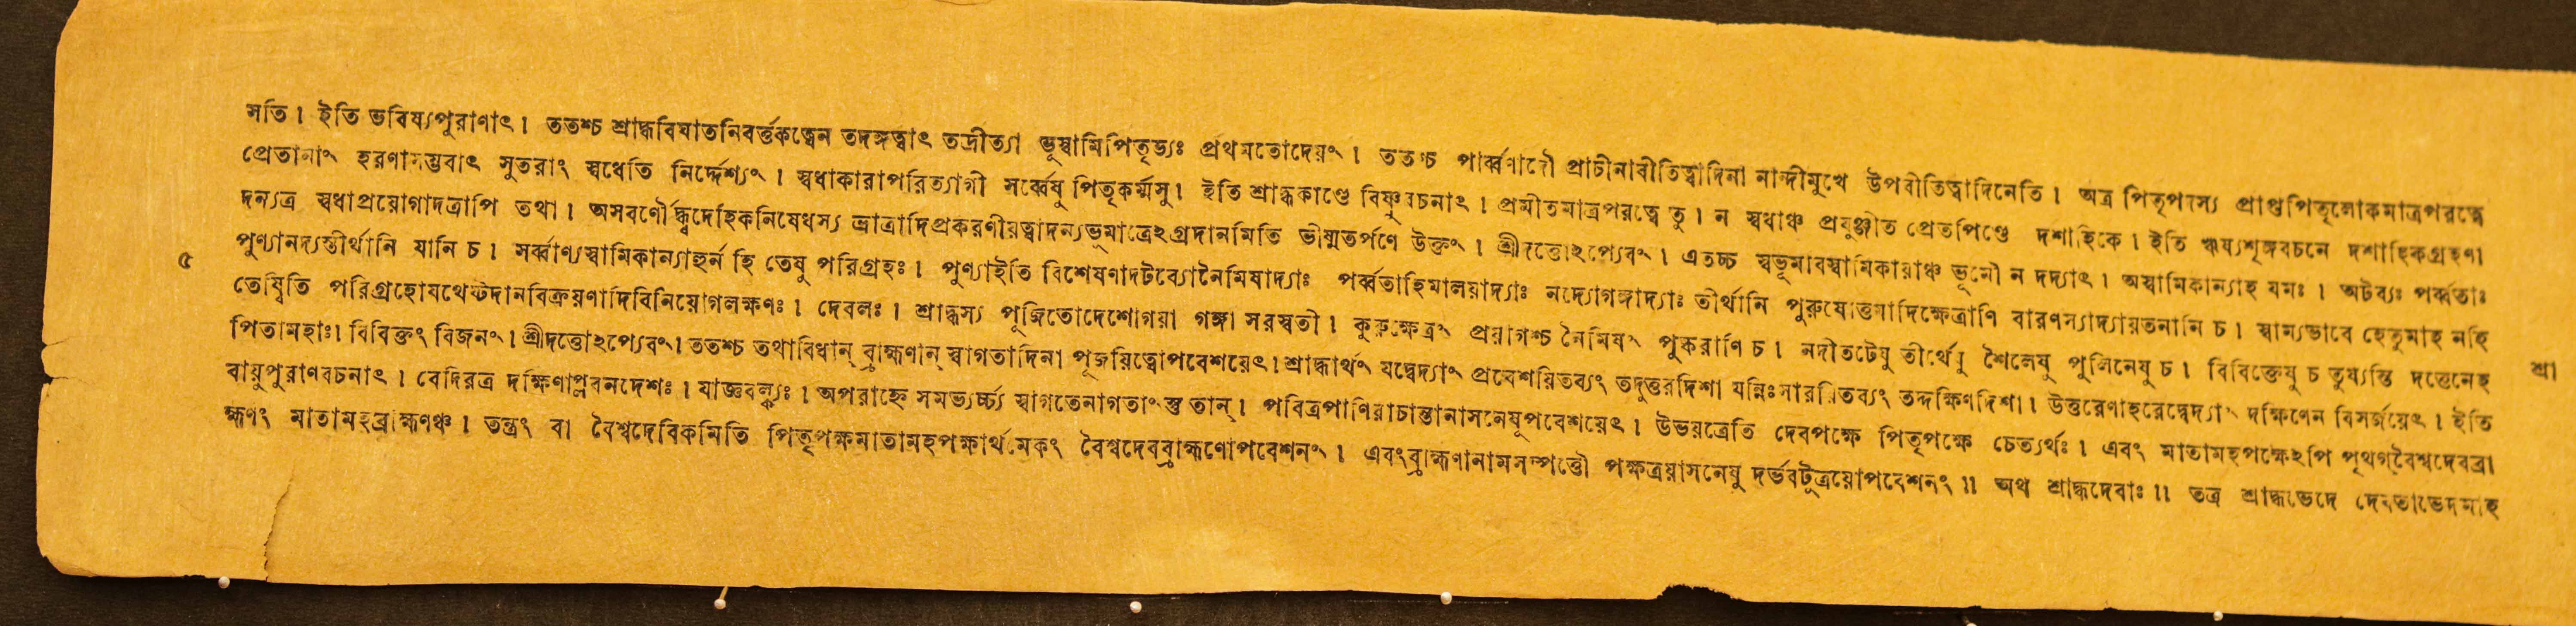 সতি। ইতি ভবিষ্যপুরাণাৎ। ততশ্চ শ্রাদ্ধবিঘাতনিবর্ত্তকত্বেন তদঙ্গত্বাৎ তদ্রীত্যা ভূস্বামিপিতৃভ্যঃ প্রথমতোদেয়ং। ততশ্চ পার্ব্বণাদৌ প্রাচীনাবীতিত্বাদিনা নান্দীমুখে উপবীতিত্বাদিনেতি। অত্র পিতৃপদস্য প্রাপ্তপিতৃলোকমাত্রপরত্বে
প্রেতানাং হরণাসম্ভবাৎ সুতরাং স্বধেতি নির্দ্দেশ্যং। স্বধাকারাপরিত্যাগী সর্ব্বেষু পিতৃকর্ম্মসু। ইতি শ্রাদ্ধকাণ্ডে বিষ্ণুবচনাৎ। প্রমীতমাত্রপরত্বে তু। ন স্বধাঞ্চ প্রযুঞ্জীত প্রেতপিণ্ডে দশাহিকে। ইতি ঋষ্যশৃঙ্গবচনে দশাহিকগ্রহণা
দন্যত্র স্বধাপ্রয়োগাদত্রাপি তথা। অসবর্ণৌর্দ্ধ্বদেহিকনিষেধস্য ভ্রাত্রাদিপ্রকরণীয়ত্বাদন্যভূমাত্রেঽগ্রদানমিতি ভীষ্মতর্পণে উক্তং। শ্রীদত্তোঽপ্যেবং। এতচ্চ স্বভূমাবস্বামিকায়াঞ্চ ভূমৌ ন দদ্যাৎ। অস্বামিকান্যাহ যমঃ। অটব্যঃ পর্ব্বতাঃ
৫ পুণ্যানদ্যস্তীর্থানি যানি চ। সর্ব্বাণ্যস্বামিকান্যাহুর্ন হি তেষু পরিগ্রহঃ। পুণ্যাইতি বিশেষণাদটব্যোনৈমিষাদ্যাঃ পর্ব্বতাহিমালয়াদ্যাঃ নদ্যোগঙ্গাদ্যাঃ তীর্থানি পুরুষোত্তমাদিক্ষেত্রাণি বারণস্যাদ্যায়তনানি চ। স্বাম্যভাবে হেতুমাহ নহি
তেষ্বিতি পরিগ্রহোযথেষ্টদানবিক্রয়ণাদিবিনিয়োগলক্ষণঃ। দেবলঃ। শ্রাদ্ধস্য পূজিতোদেশোগয়া গঙ্গা সরস্বতী। কুরুক্ষেত্রং প্রয়াগশ্চ নৈমিষং পুষ্করাণি চ। নদীতটেষু তীর্থেষু শৈলেষু পুলিনেষু চ। বিবিক্তেষু চ তুষ্যন্তি দত্তেনেহ শ্রা
পিতামহাঃ। বিবিক্তং বিজনং। শ্রীদত্তোঽপ্যেবং। ততশ্চ তথাবিধান্ ব্রাহ্মণান্ স্বাগতাদিনা পূজয়িত্বোপবেশয়েৎ। শ্রাদ্ধার্থং যদ্বেদ্যাং প্রবেশয়িতব্যং তদুত্তরদিশা যন্নিঃসারয়িতব্যং তদ্দক্ষিণদিশা। উত্তরেণাহরেদ্বেদ্যাং দক্ষিণেন বিসর্জয়েৎ। ইতি
বায়ুপুরাণবচনাৎ। বেদিরত্র দক্ষিণাপ্লবনদেশঃ। যাজ্ঞবল্ক্যঃ। অপরাহ্নে সমভ্যর্চ্চ্য স্বাগতেনাগতাংস্তু তান্। পবিত্রপাণিরাচান্তানাসনেষূপবেশয়েৎ। উভয়ত্রেতি দেবপক্ষে পিতৃপক্ষে চেত্যর্থঃ। এবং মাতামহপক্ষেঽপি পৃথগ্বৈশ্বদেবব্রা
হ্মণং মাতামহব্রাহ্মণঞ্চ। তন্ত্রং বা বৈশ্বদেবিকমিতি পিতৃপক্ষমাতামহপক্ষার্থমেকং বৈশ্বদেবব্রাহ্মণোপবেশনং। এবংব্রাহ্মণানামসম্পত্তৌ পক্ষত্রয়াসনেষু দর্ভবটুত্রয়োপবেশনং॥ অথ শ্রাদ্ধদেবাঃ॥ তত্র শ্রাদ্ধভেদে দেবতাভেদমাহ